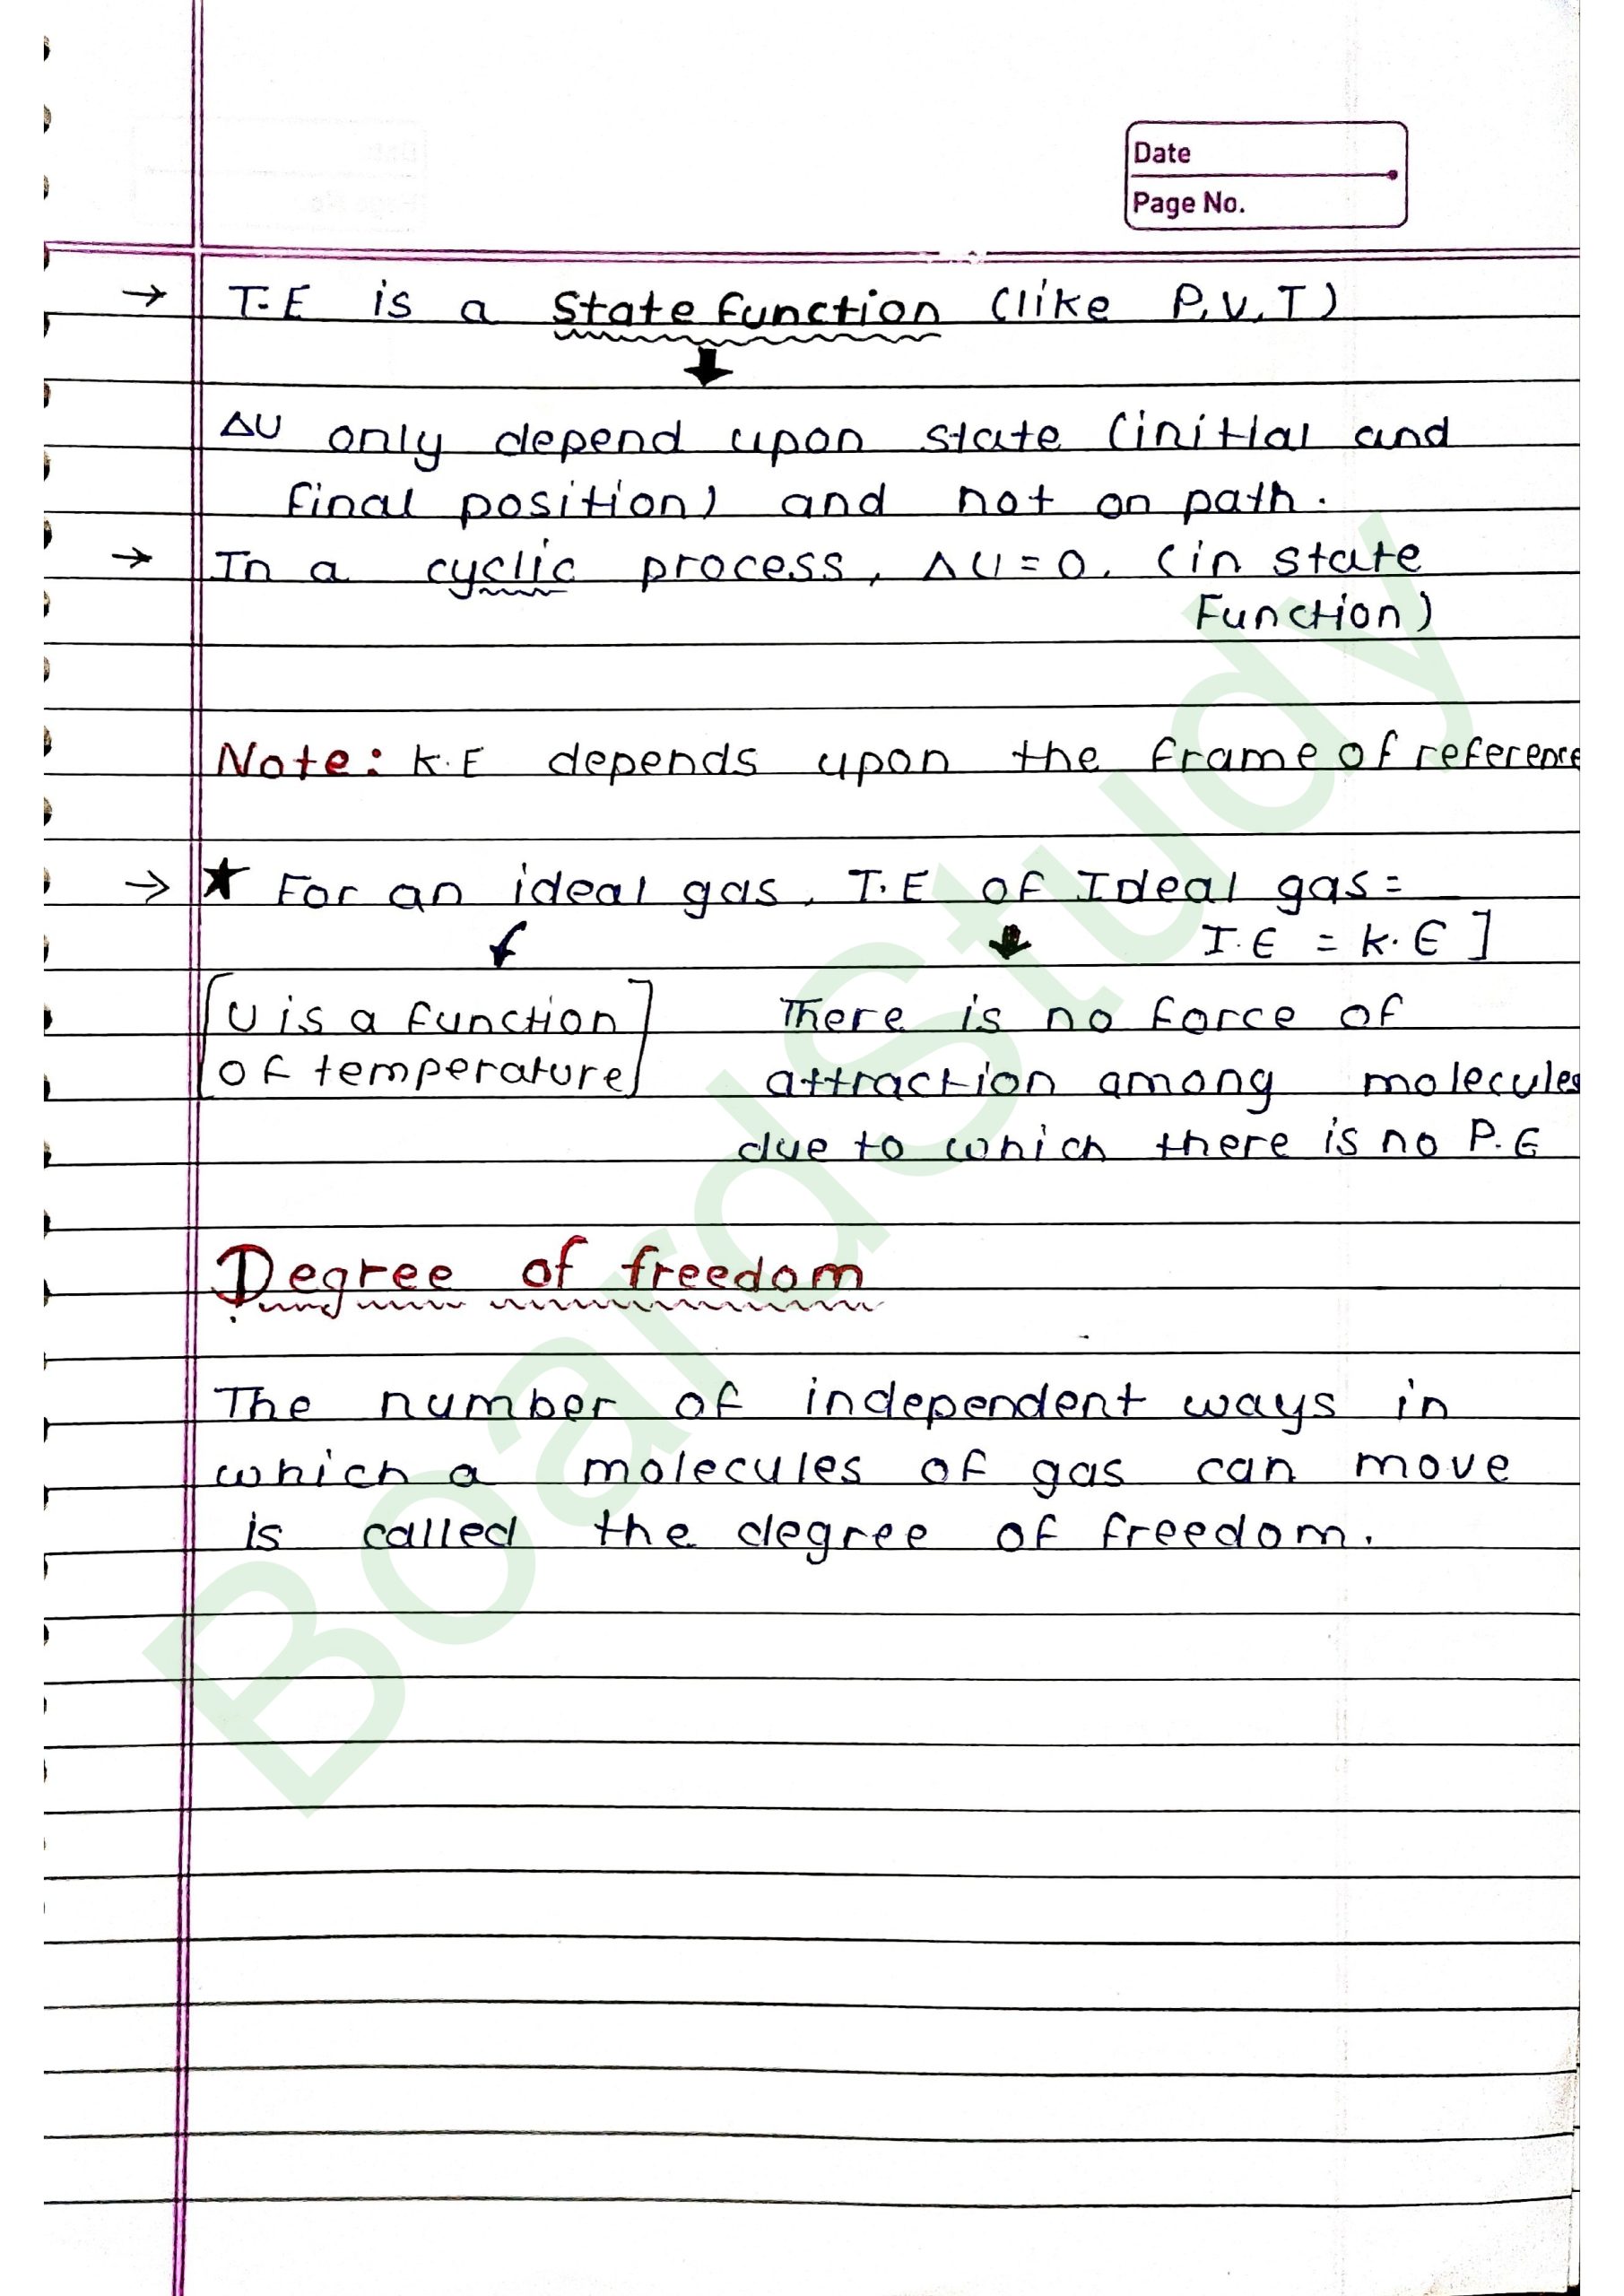 Date
Page No.
→ I.E is a state function (like P,V,T)
ΔU only depend upon state (initial and
final position) and not on path.
→ In a cyclic process, ΔU = 0. (in state
Function)
Note: K.E depends upon the frame of reference
→ ★ For an ideal gas, I.E of Ideal gas =
I.E = K.E ]
[U is a function There is no force of
of temperature] attraction among molecules
due to which there is no P.E
Degree of freedom
The number of independent ways in
which a molecules of gas can move
is called the degree of freedom.
BoardStudy